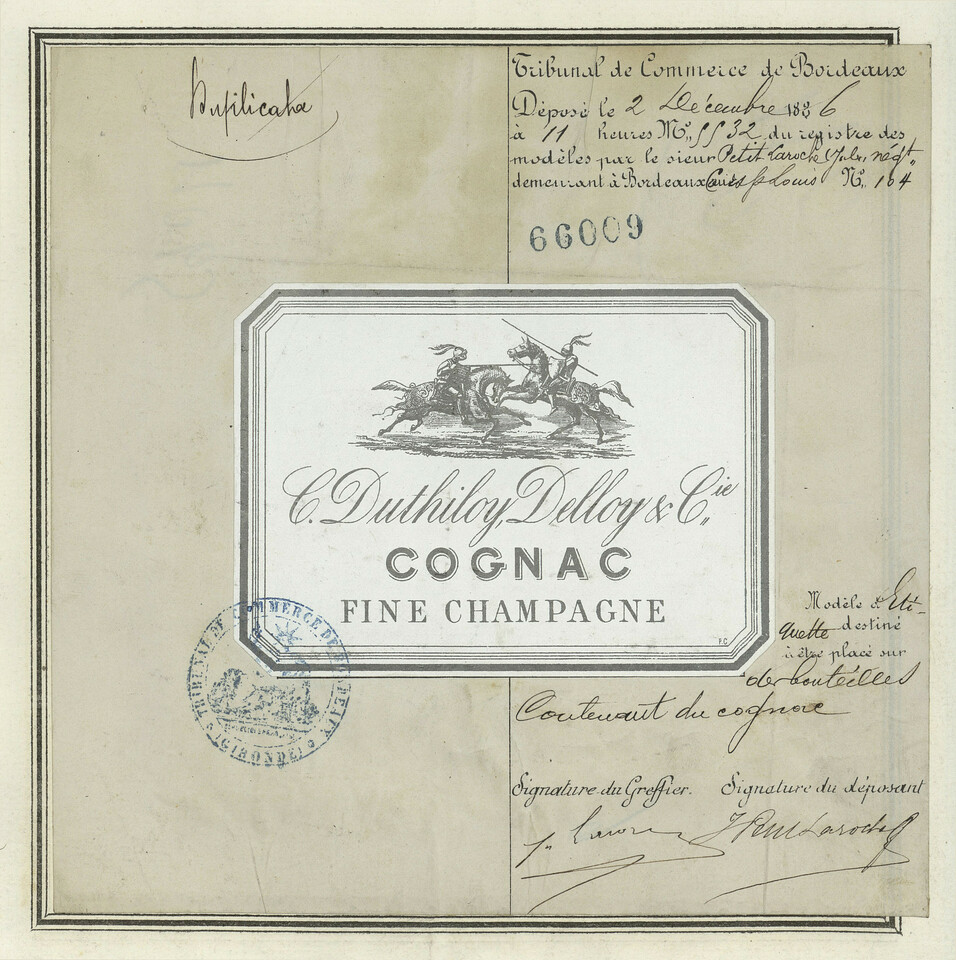 Duplicata
Tribunal de Commerce de Bordeaux
Déposé le 2 Décembre 1886
à 11 heures M. N° 5532 du registre des
modèles par le sieur Petit Laroche Jules, négt.
demeurant à Bordeaux Cours St Louis N° 104
66009
C. Duthiloy, Delloy & Cie
COGNAC
FINE CHAMPAGNE
P.C
Modèle d'Eti-
quette destiné
à être placé sur
des bouteilles
Contenant du cognac
TRIBUNAL DE COMMERCE DE BORDEAUX
(GIRONDE)
Signature du Greffier. Signature du déposant
Laroche